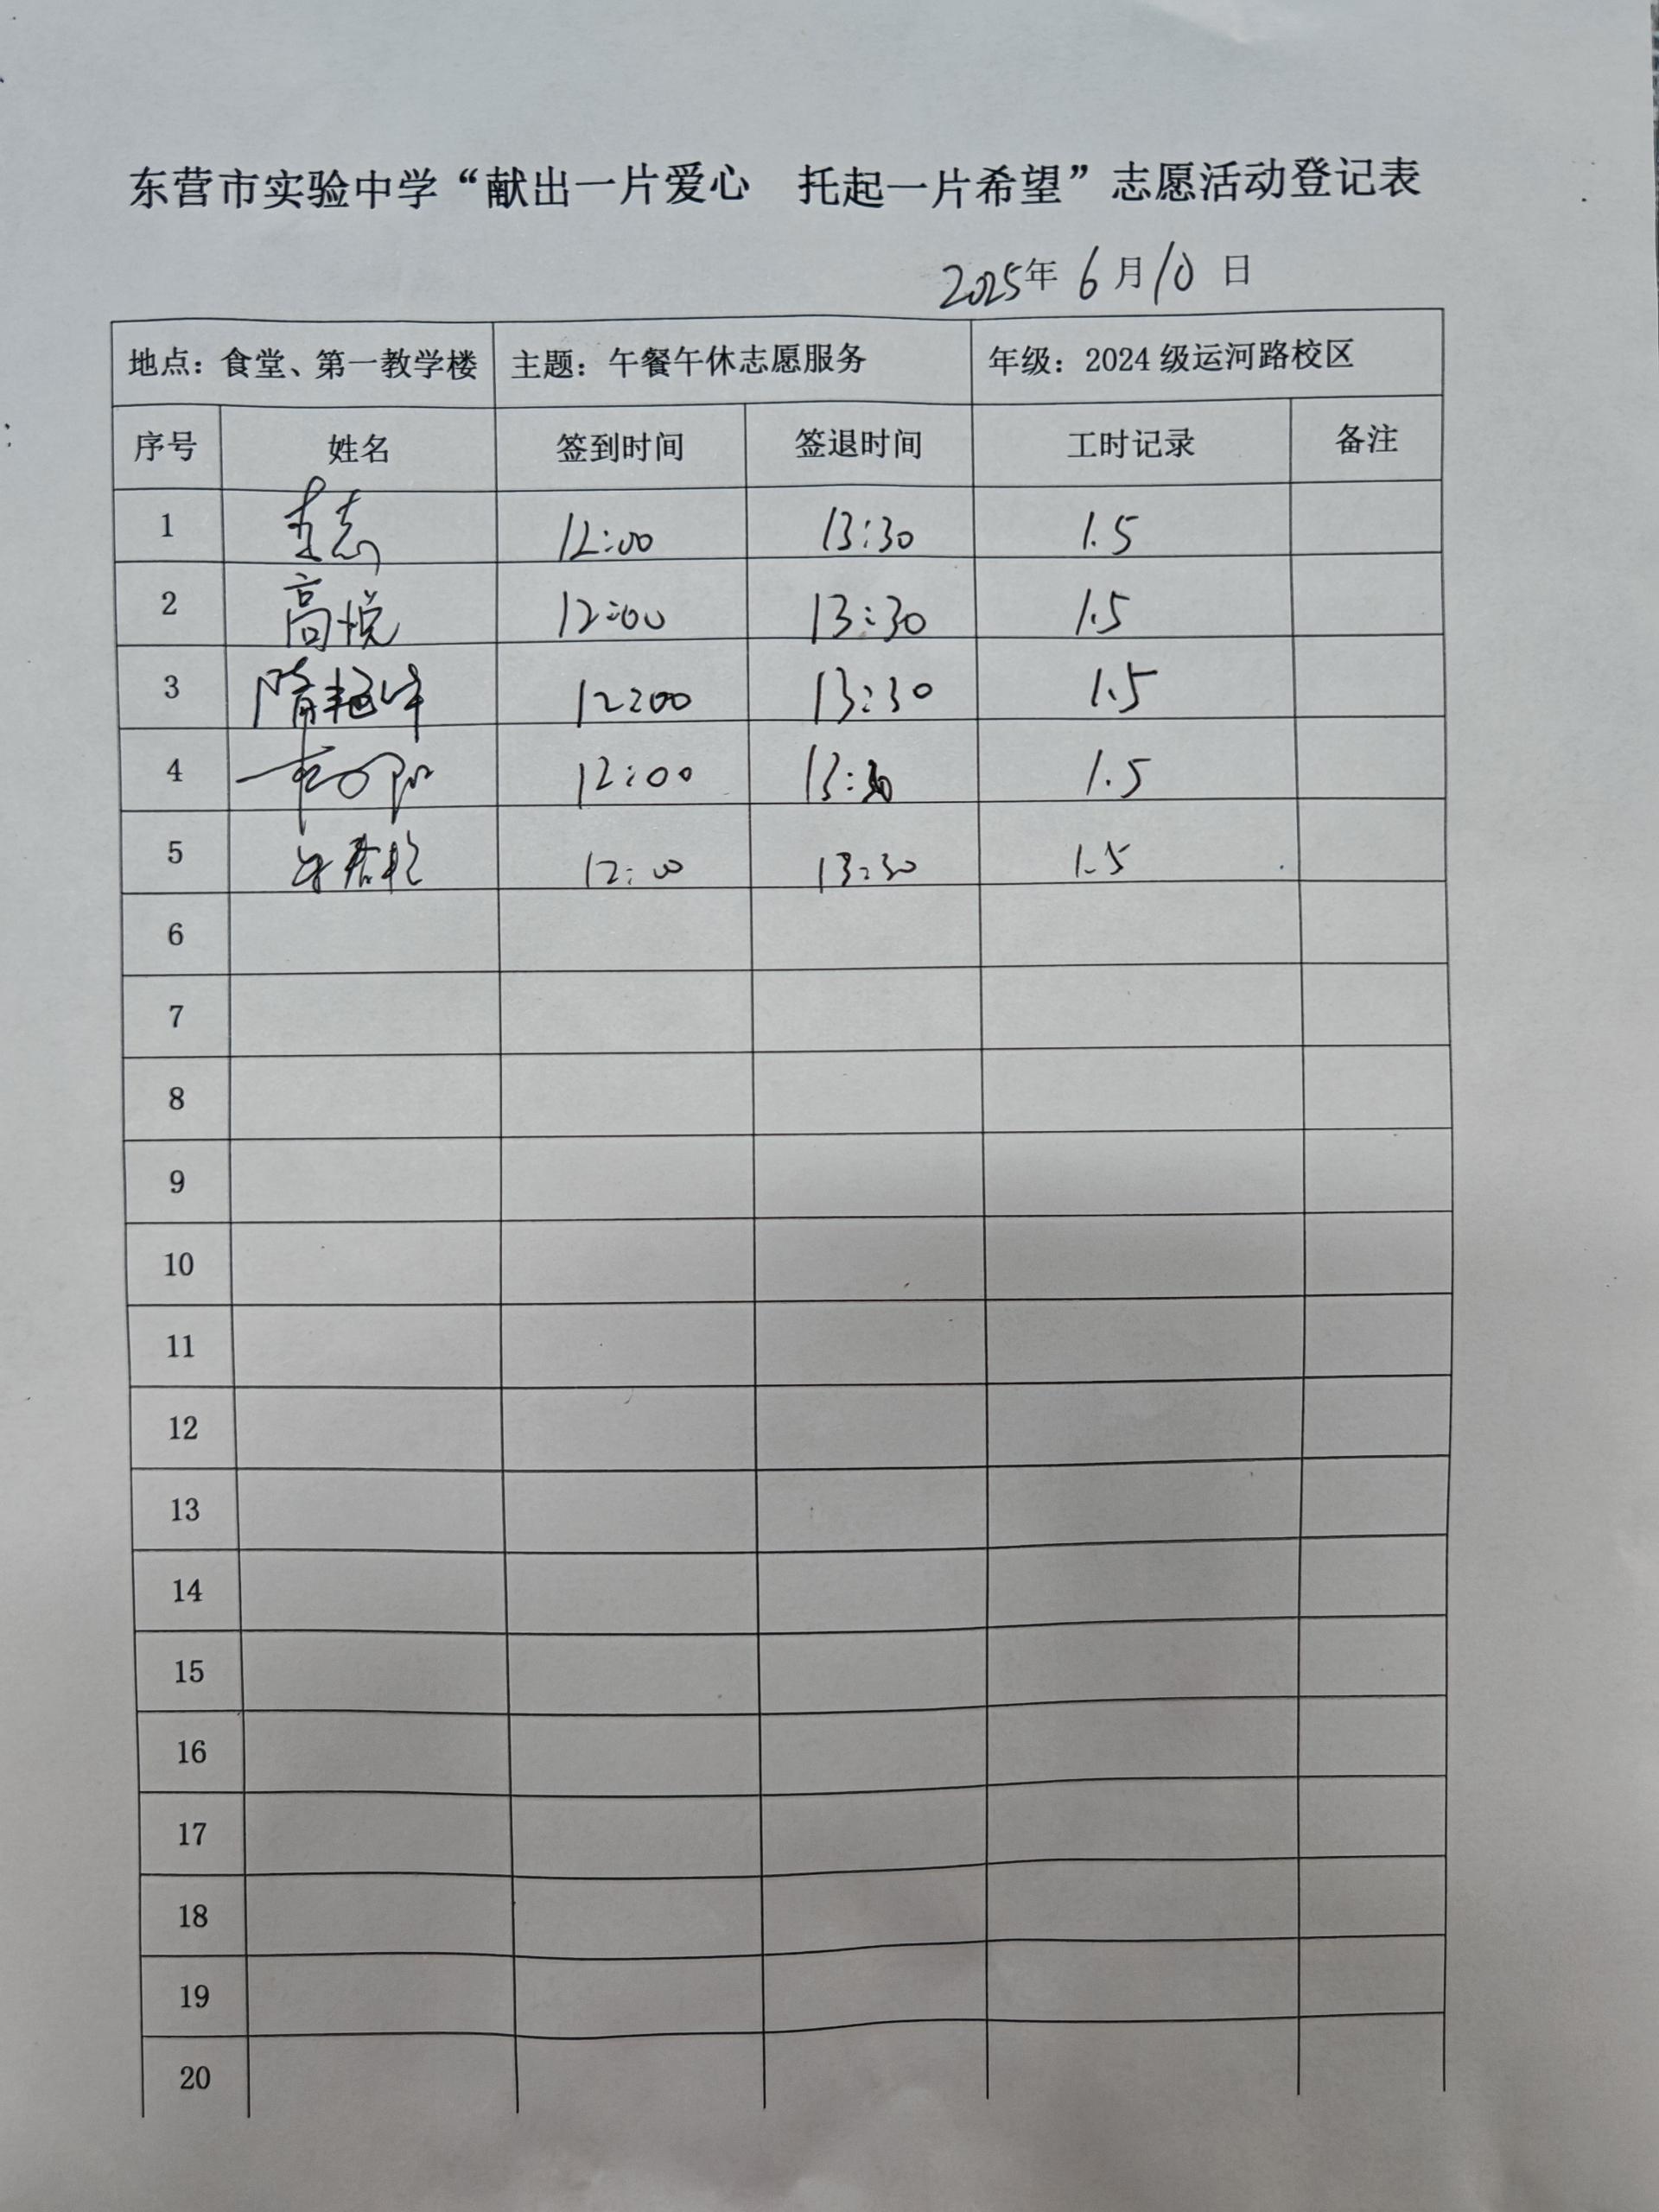 东营市实验中学“献出一片爱心 托起一片希望”志愿活动登记表
2025年 6 月 10 日
地点：食堂、第一教学楼 主题：午餐午休志愿服务 年级：2024 级运河路校区
序号 姓名 签到时间 签退时间 工时记录 备注
1 12:00 13:30 1.5
2 高悦 12:00 13:30 1.5
3 隋艳 12:00 13:30 1.5
4 12:00 13:30 1.5
5 12:00 13:30 1.5
6
7
8
9
10
11
12
13
14
15
16
17
18
19
20